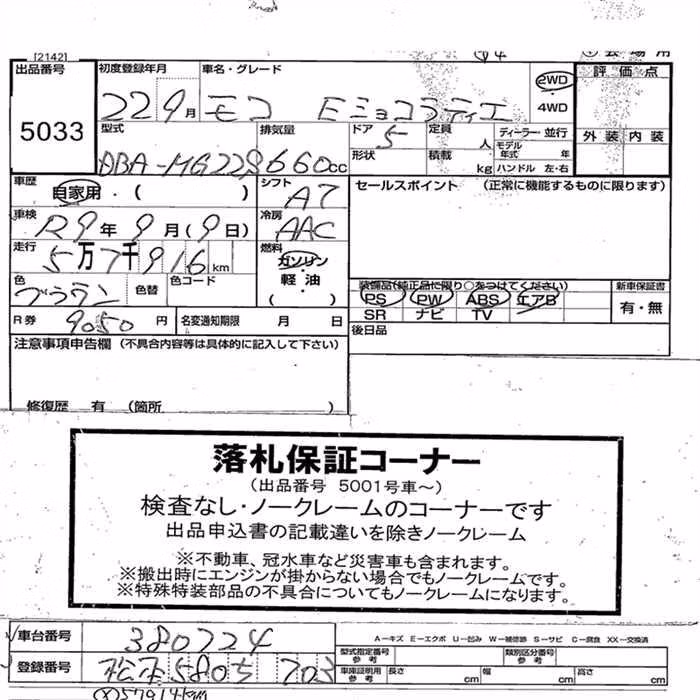 [2142]
出品番号 初度登録年月 車名・グレード 2WD 評価点
22 9月 モコ Eショコラティエ ・
4WD
5033 型式 排気量 ドア 定員 ディーラー・並行 外装 内装
5 人 モデル年式 年
DBA-MG22S 660cc 形状 積載 kg ハンドル 左・右
車歴 自家用・( ) シフト AT セールスポイント (正常に機能するものに限ります)
車検 R9年9月(9日) 冷房 AAC
走行 5万7千916km 燃料 ガソリン
軽油
( )
色 ブラウン 色替 色コード 装備品(純正品に限り○をつけてください) 新車保証書
PS PW ABS エアB 有・無
SR ナビ TV
R券 9050円 名変通知期限 月 日 後日品
注意事項申告欄 (不具合内容等は具体的に記入して下さい)
修復歴 有 (箇所 )
落札保証コーナー
(出品番号 5001号車～)
検査なし・ノークレームのコーナーです
出品申込書の記載違いを除きノークレーム
※不動車、冠水車など災害車も含まれます。
※搬出時にエンジンが掛からない場合でもノークレームです。
※特殊特装部品の不具合についてもノークレームになります。
車台番号 380724 A－キズ E－エクボ U－凹み W－補修跡 S－サビ C－腐食 XX－交換済
型式指定番号 参考 類別区分番号 参考
登録番号 松本 580 703 車庫証明用 参考 長さ cm 幅 cm 高さ cm
57914km